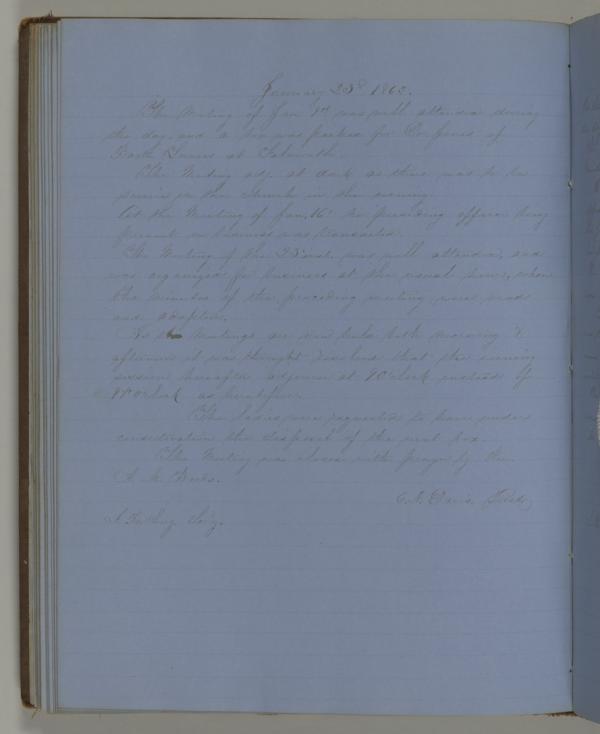 January 23d 1862.
The Meeting of Jan 9th was well attended during
the day, and a box was packed for Co.
at Falmouth.
The Meeting adj. at dark as there was to be
service in the church in the evening.
At the Meeting of Jan. 16' no presiding officer being
present no business was transacted.
The Meeting of the 23d inst. was well attended, and
was organized for business at the usual hour, when
the minutes of the preceding meeting were read
and adopted.
As the Meetings are now held both morning &
afternoon it was thought best that the evening
session hereafter adjourn at 9 o'clock instead of
o'clock as heretofore.
The ladies were requested to have under
consideration the disposal of the next box.
The Meeting was closed with prayer by Rev.
Davis